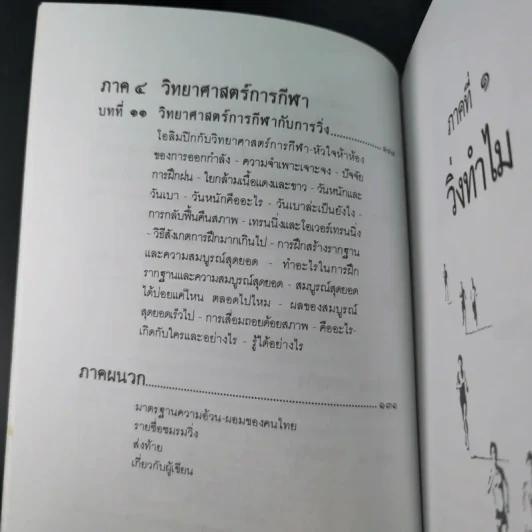 ภาค ๔ วิทยาศาสตร์การกีฬา
บทที่ ๑๑ วิทยาศาสตร์การกีฬากับการวิ่ง
โอลิมปิกกับวิทยาศาสตร์การกีฬา-หัวใจห้าห้อง
ของการออกกำลัง - ความจำเพาะเจาะจง - ปัจจัย
การฝึกฝน - ใยกล้ามเนื้อแดงและขาว - วันหนักและ
วันเบา - วันหนักคืออะไร - วันเบาล่ะเป็นยังไง -
การกลับฟื้นคืนสภาพ - เทรนนิ่งและโอเวอร์เทรนนิ่ง
- วิธีสังเกตการฝึกมากเกินไป - การฝึกสร้างรากฐาน
และความสมบูรณ์สุดยอด - ทำอะไรในการฝึก
รากฐานและความสมบูรณ์สุดยอด - สมบูรณ์สุดยอด
ได้บ่อยแค่ไหน ตลอดไปไหม - ผลของสมบูรณ์
สุดยอดเร็วไป - การเสื่อมถอยด้อยสภาพ - คืออะไร-
เกิดกับใครและอย่างไร - รู้ได้อย่างไร
ภาคผนวก ๑๓๑
มาตรฐานความอ้วน-ผอมของคนไทย
รายชื่อชมรมวิ่ง
ส่งท้าย
เกี่ยวกับผู้เขียน
ภาคที่ ๑
วิ่งทำไม